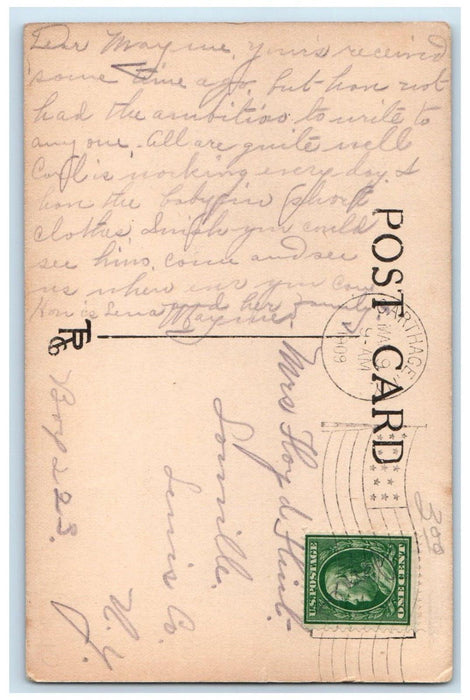 Dear Mayme, yours received
some time ago, but hav not
had the ambition to write to
any one. All are quite well
Carl is working every day. I
hav the baby in short
clothes I wish you could
see him. come and see
us when ever you can
How is Lena and her family
Mayme.
POST CARD
CARTHAGE
MAR 9
9-AM
1909
TP & Co
Mrs Floyd Flint.
Lowville.
Lewis Co.
N.Y.
Box 223.
300
U.S. POSTAGE
ONE CENT